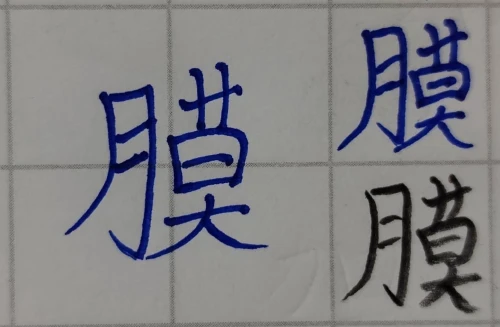 膜
膜
膜